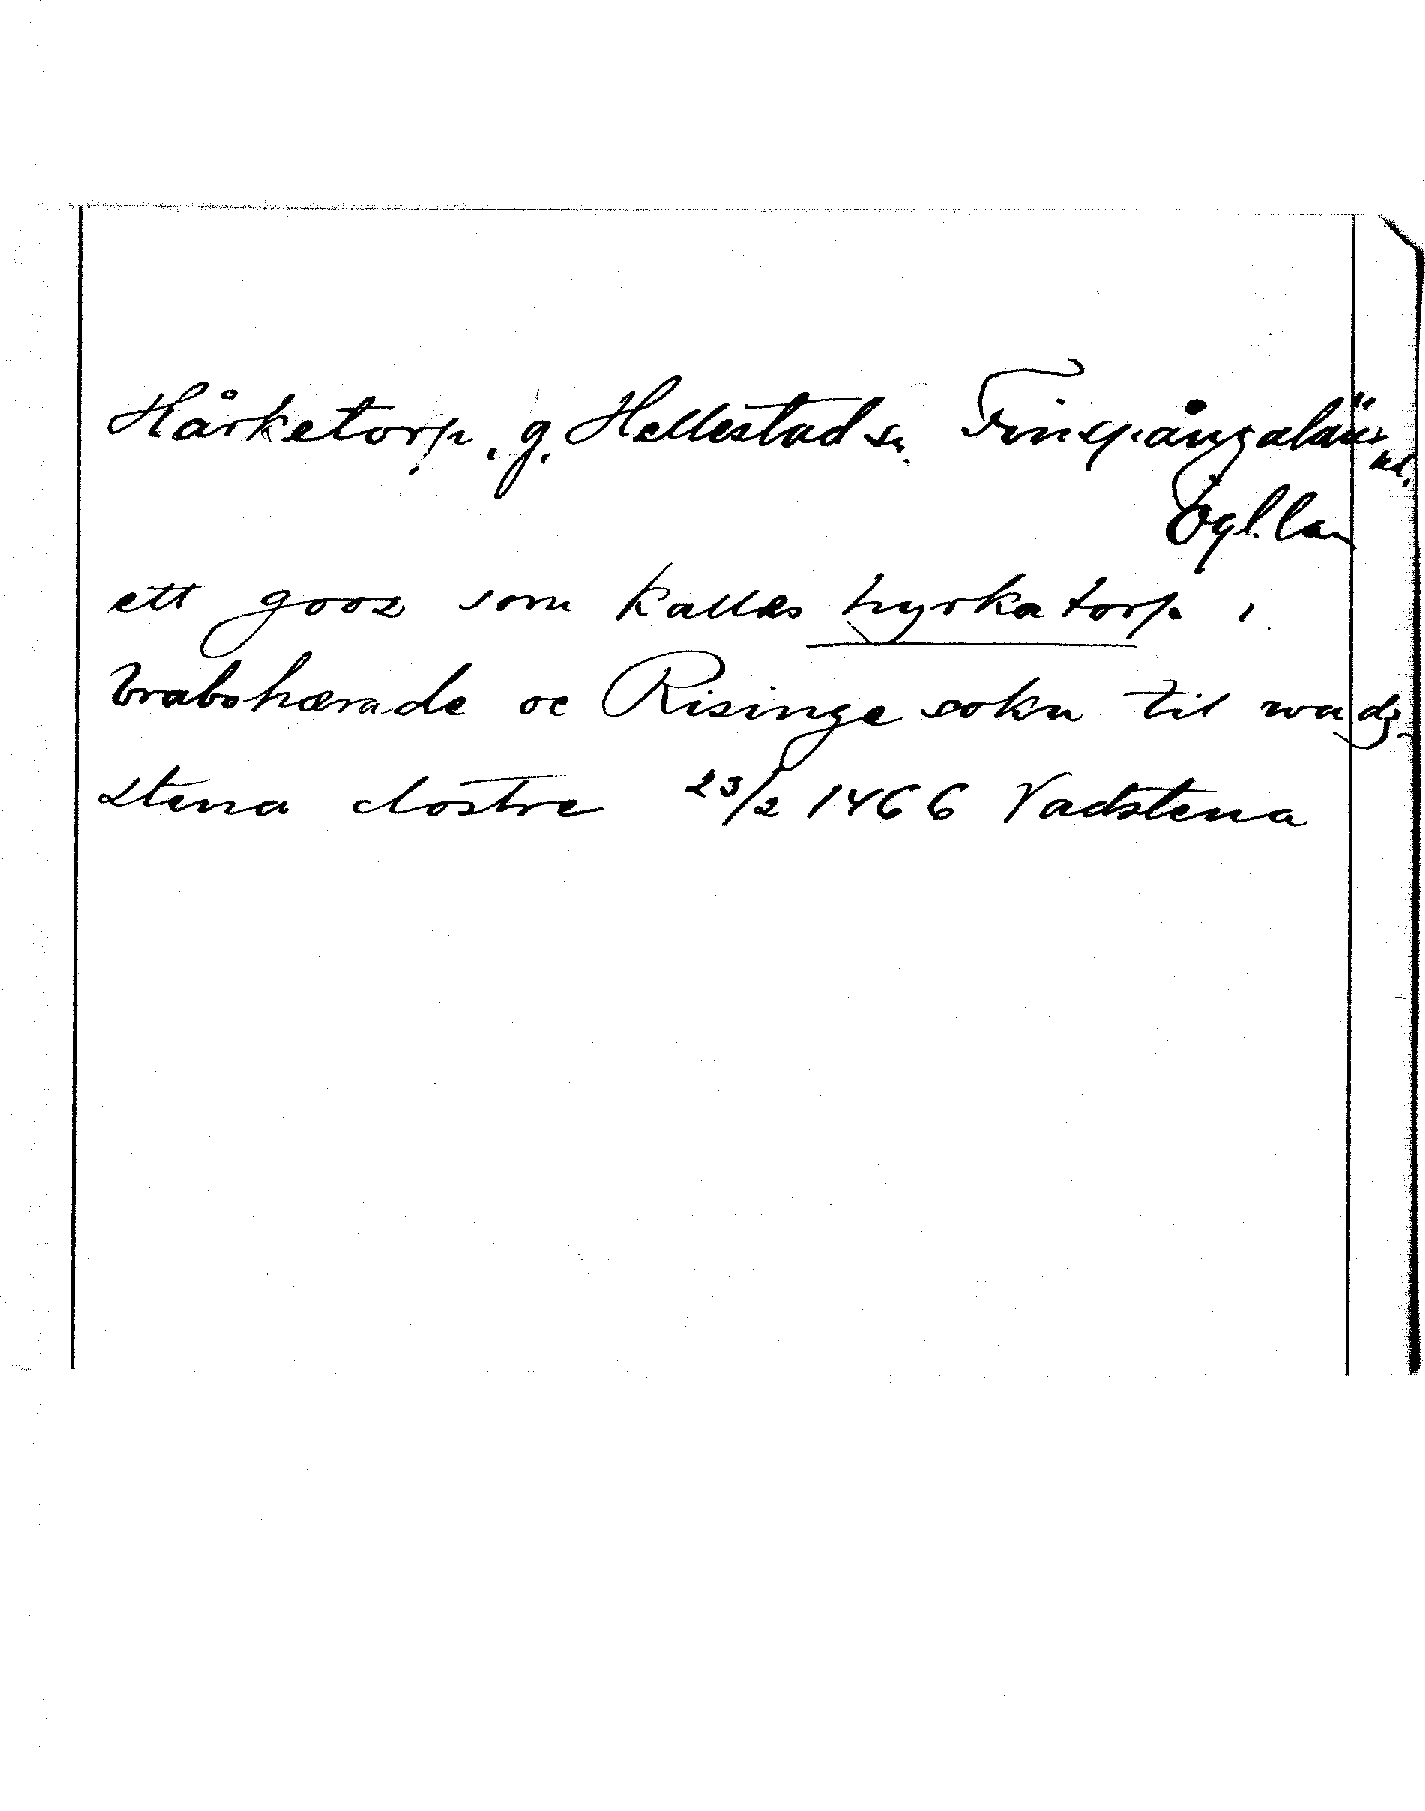 Hårketorp, g. Hellestad sn. Finspångaläns
hd.
Ögl. län
ett gooz som kallas hyrkatorp i
brabohærade oc Risinge sokn til wadz-
stena clostre 23/2 1466 Vadstena